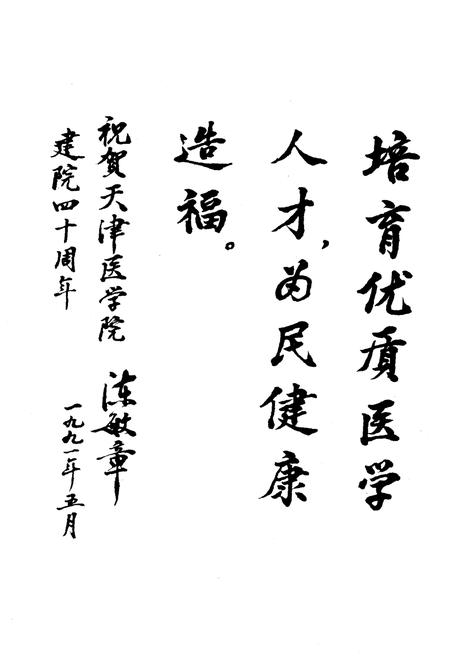 培育优质医学
人才，为民健康
造福。
祝贺天津医学院
建院四十周年
陈敏章
一九九一年五月